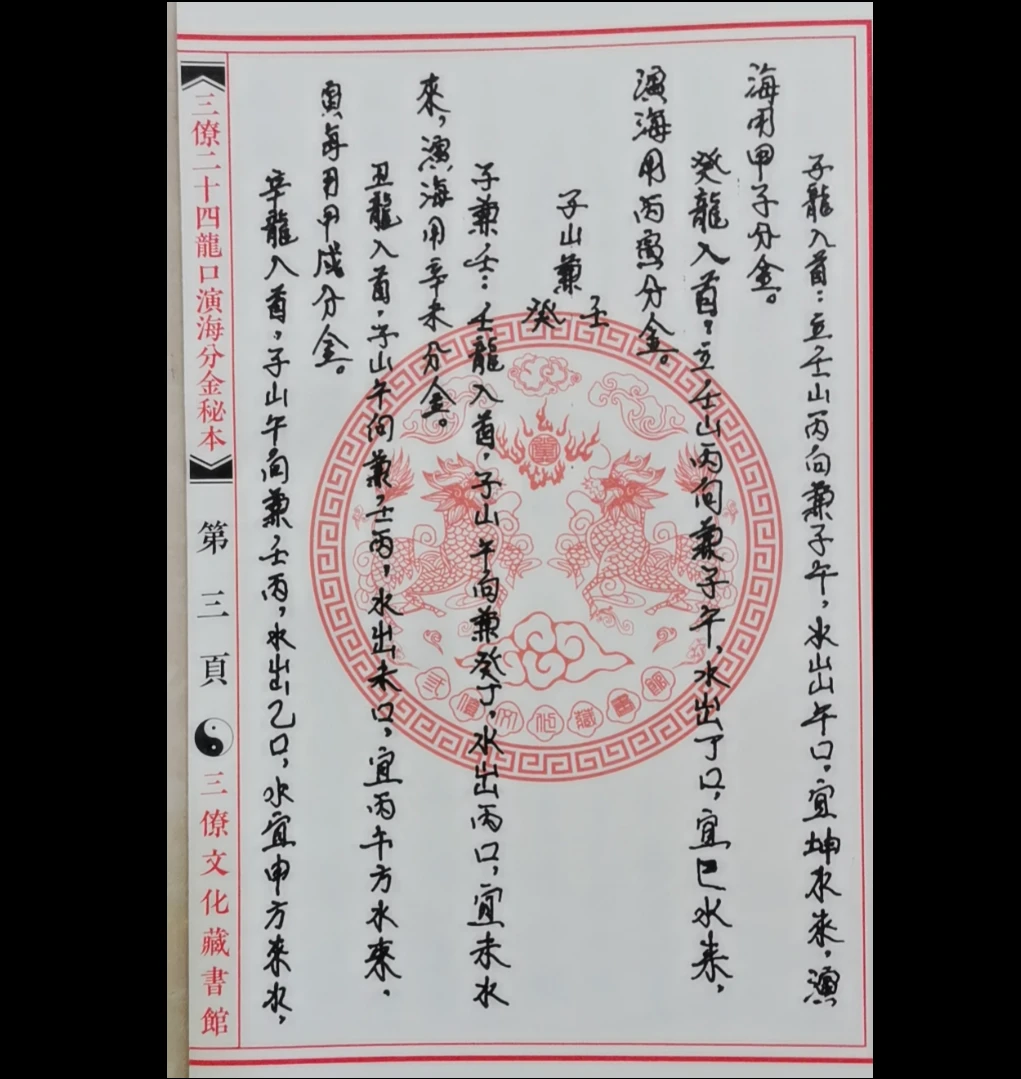 子龍入首：立壬山丙向兼子午，水出午口，宜坤水來，演
海用甲子分金。
癸龍入首：立壬山丙向兼子午，水出丁口，宜巳水来，
演海用丙寅分金。
子山兼
壬
癸
子兼壬：壬龍入首，子山午向兼癸丁，水出丙口，宜未水
來，演海用辛未分金。
丑龍入首，子山午向兼壬丙，水出未口，宜丙午方水來，
寅每用甲戌分金。
辛龍入首，子山午向兼壬丙，水出乙口，水宜申方來水，
三僚二十四龍口演海分金秘本
第三頁
三僚文化藏書館